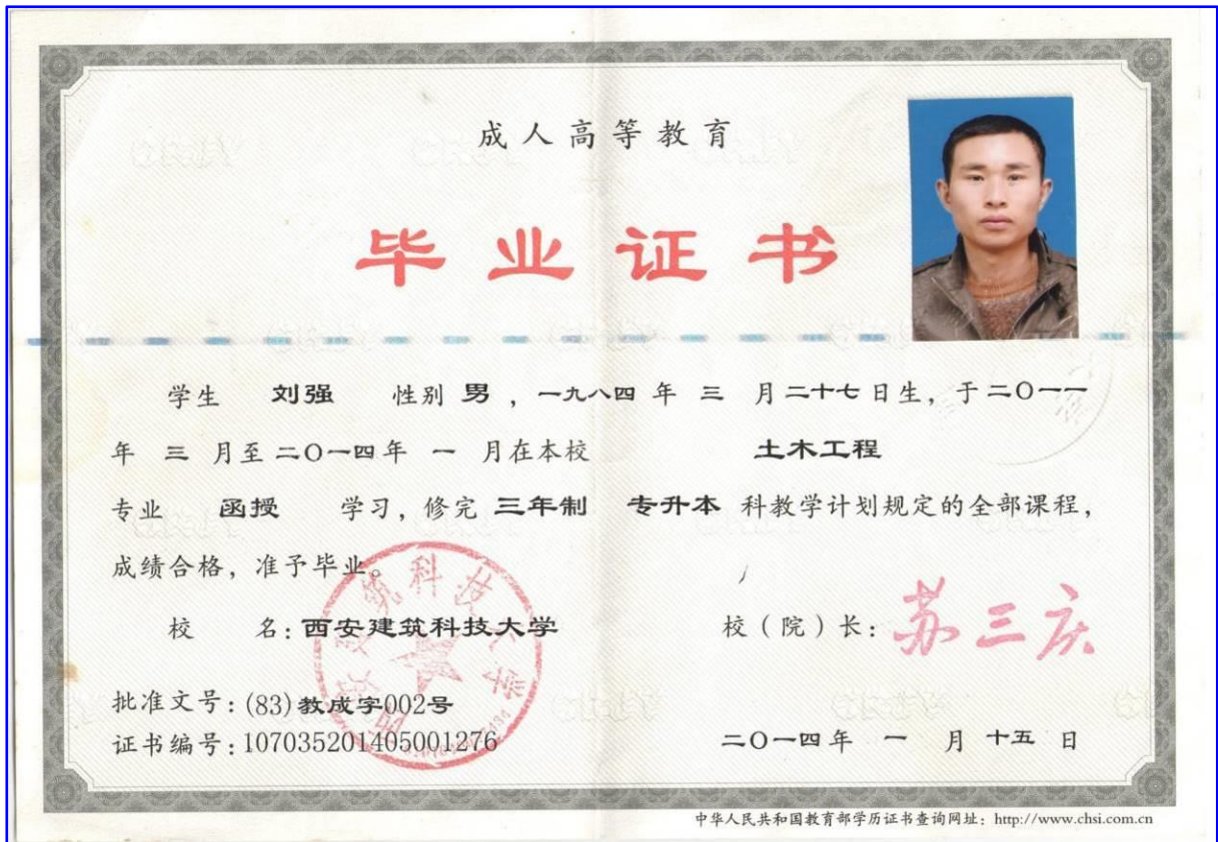 成人高等教育
毕业证书
学生 刘强 性别 男 ，一九八四 年 三 月二十七日生，于二〇一一
年 三 月至二〇一四年 一 月在本校 土木工程
专业 函授 学习，修完 三年制 专升本 科教学计划规定的全部课程，
成绩合格，准予毕业。
校 名：西安建筑科技大学 校（院）长：苏三庆
批准文号：(83)教成字002号
证书编号：107035201405001276 二〇一四年 一 月 十五 日
中华人民共和国教育部学历证书查询网址：http://www.chsi.com.cn